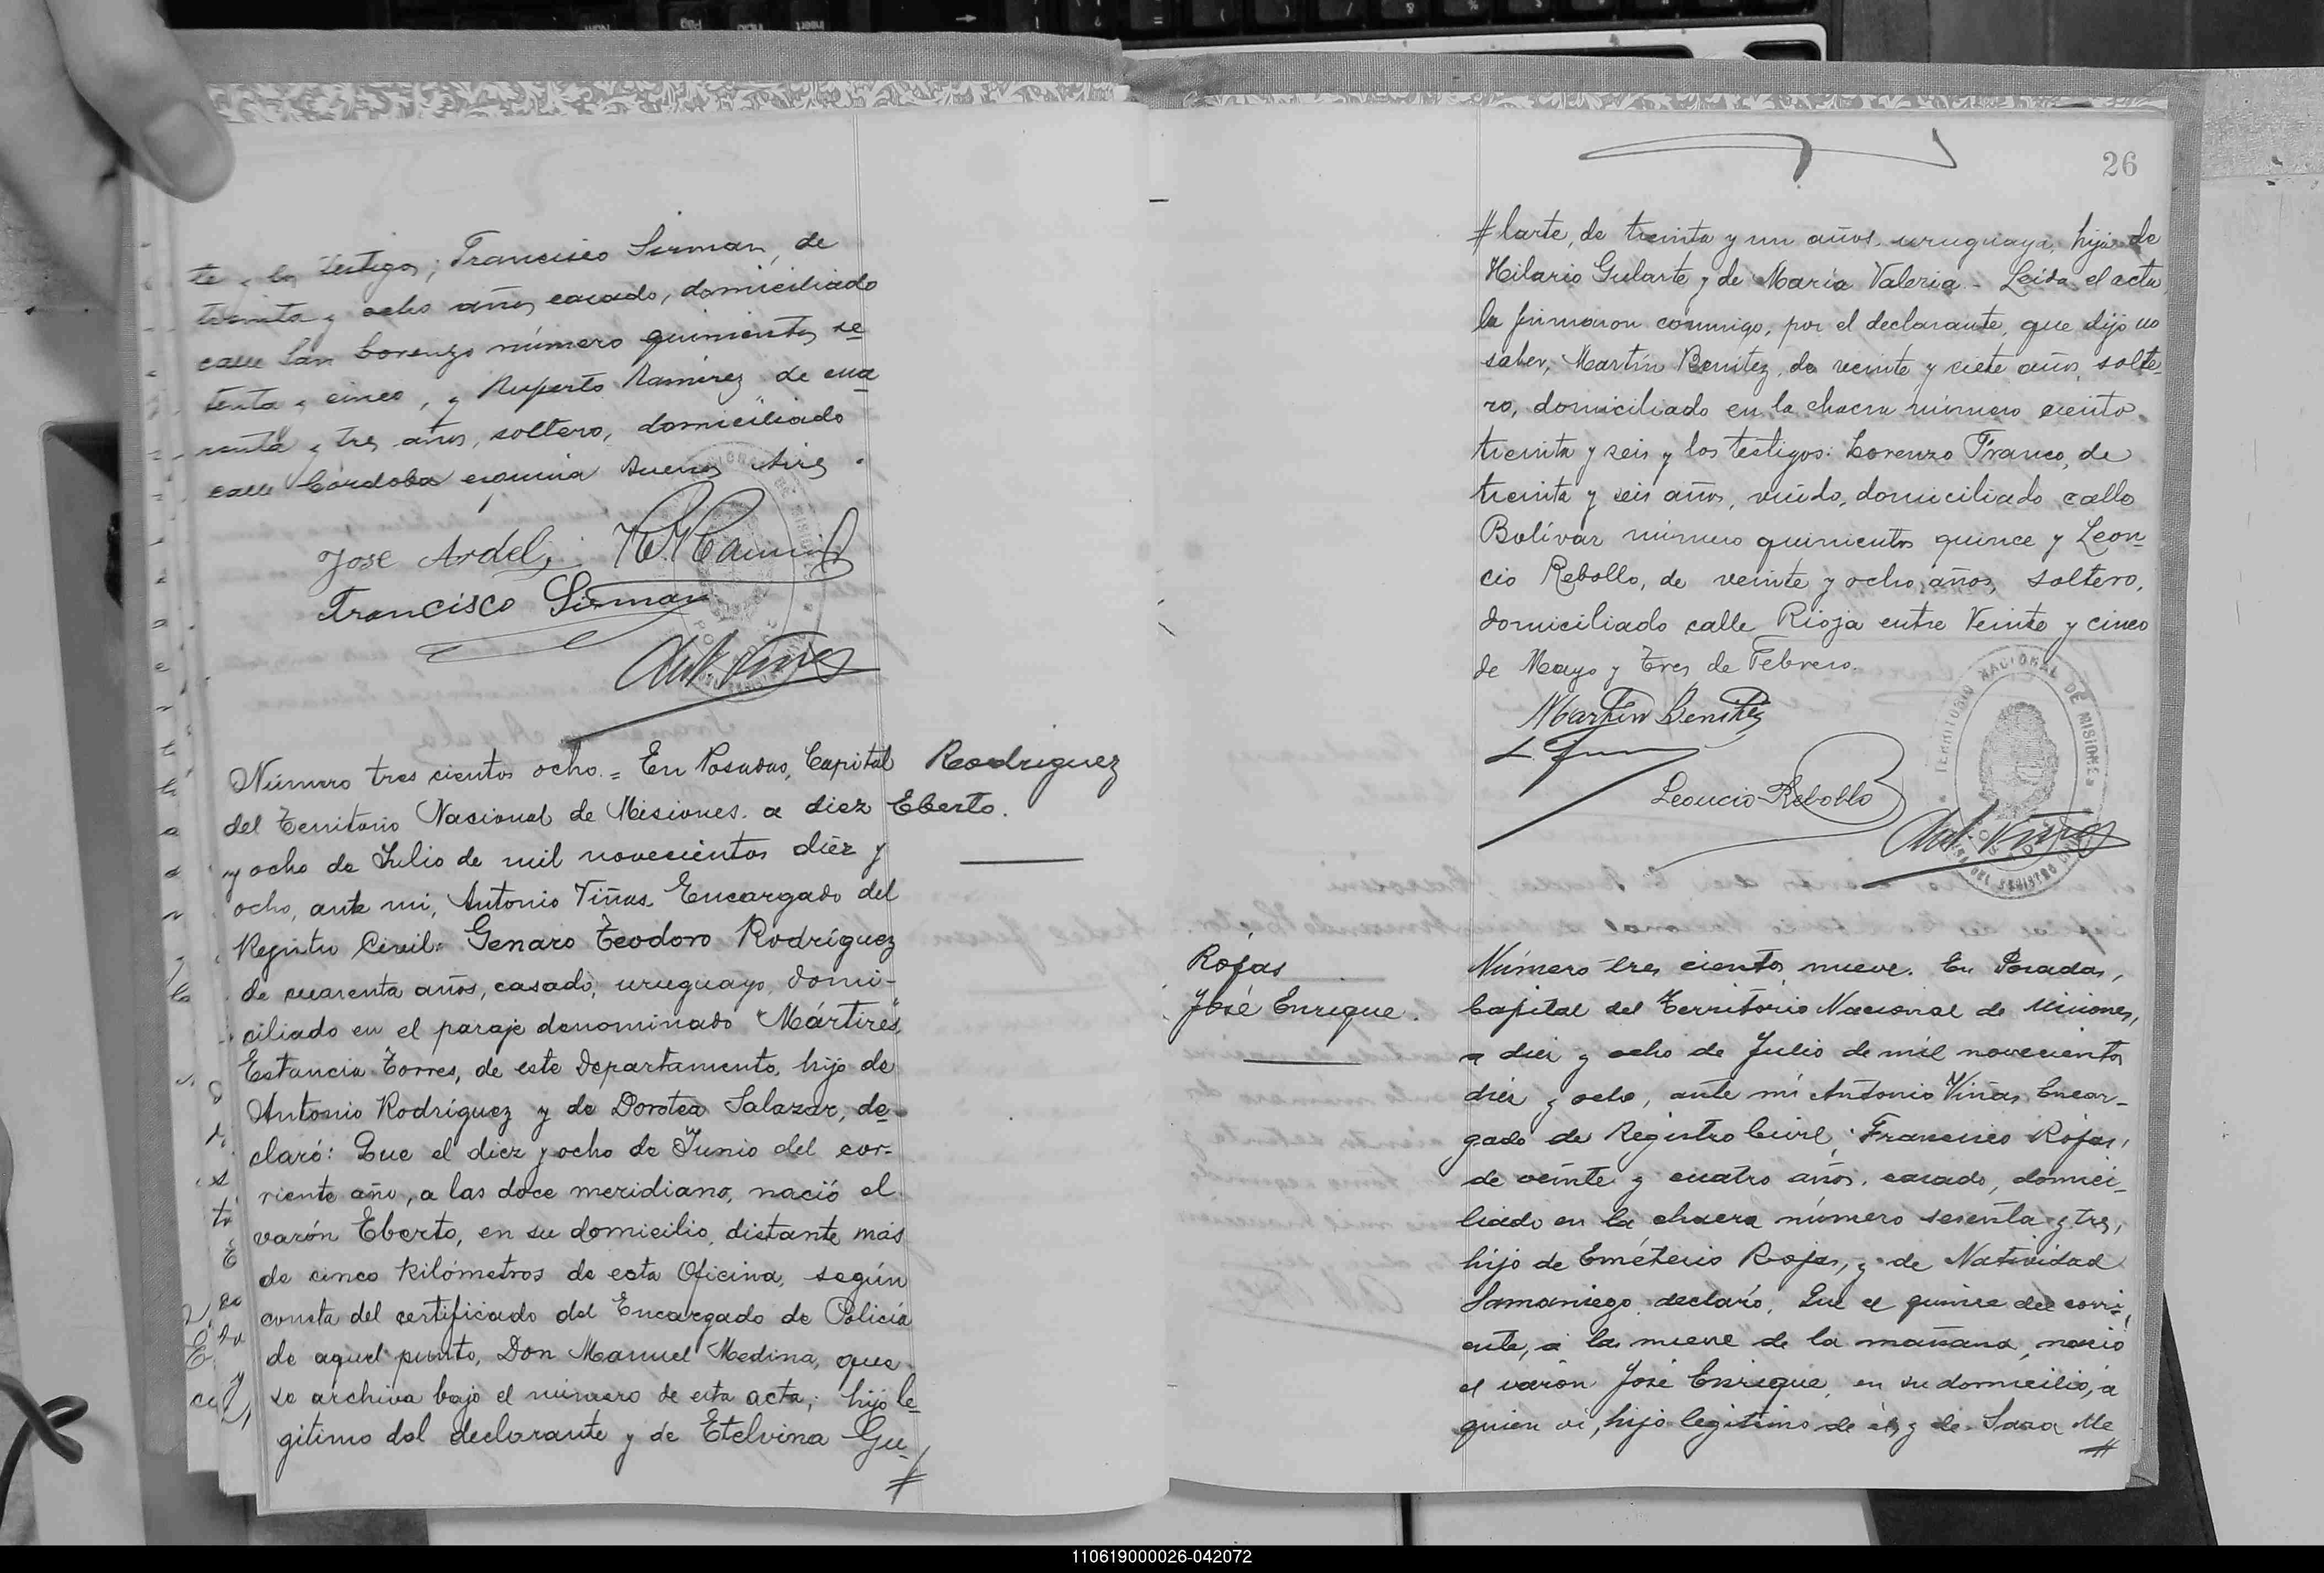 te y los testigos; Francisco Sirman, de
treinta y ocho años casado, domiciliado
calle San Lorenzo número quinientos se
tenta y cinco, y Ruperto Ramirez de cua
renta y tres años, soltero, domiciliado
calle Córdoba esquina Buenos Aires.
José Ardel
Francisco Sirman
Ant. Viñas
Número tres cientos ocho. = En Posadas, Capital
del Territorio Nacional de Misiones. a diez
y ocho de Julio de mil novecientos diéz y
ocho, ante mi, Antonio Viñas Encargado del
Registro Civil: Genaro Teodoro Rodríguez
de cuarenta años, casado, uruguayo, domi-
ciliado en el paraje denominado "Mártires"
Estancia Torres, de este Departamento, hijo de
Antonio Rodríguez y de Dorotea Salazar, de-
claró: Que el diez y ocho de Junio del cor-
riente año, a las doce meridiano, nació el
varón Eberto, en su domicilio, distante más
de cinco kilómetros de esta Oficina, según
consta del certificado del Encargado de Policía
de aquel punto, Don Manuel Medina, que
se archiva bajo el número de esta acta; hijo le-
gitimo del declarante y de Etelvina Gu-
#
Rodriguez
Eberto.
26
# larte, de treinta y un años, uruguaya, hija de
Hilario Gularte y de María Valeria - Leida el acta
la firmaron conmigo, por el declarante, que dijo no
saber, Martín Benítez, de veinte y siete años, solte-
ro, domiciliado en la chacra número ciento
treinta y seis y los testigos: Lorenzo Franco, de
treinta y seis años, viudo, domiciliado calle
Bolívar número quinientos quince y Leon-
cio Rebollo, de veinte y ocho años, soltero,
domiciliado calle Rioja entre Veinte y cinco
de Mayo y Tres de Febrero.
Martin Benitez
Leoncio Rebollo
Ant. Viñas
TERRITORIO NACIONAL DE MISIONES
Rojas
José Enrique.
Número tres cientos nueve. En Posadas,
Capital del Territorio Nacional de Misiones,
a diez y ocho de Julio de mil novecientos
diez y ocho, ante mí Antonio Viñas Encar-
gado de Registro Civil, Francisco Rojas,
de veinte y cuatro años, casado, domici-
liado en la chacra número sesenta y tres,
hijo de Eméterio Rojas, y de Natividad
Samaniego, declaró, Que el quince del corri-
ente, a las nueve de la mañana, nació
el varón José Enrique, en su domicilio, a
quien vi, hijo legitimo de él, y de Sara Me
#
110619000026-042072